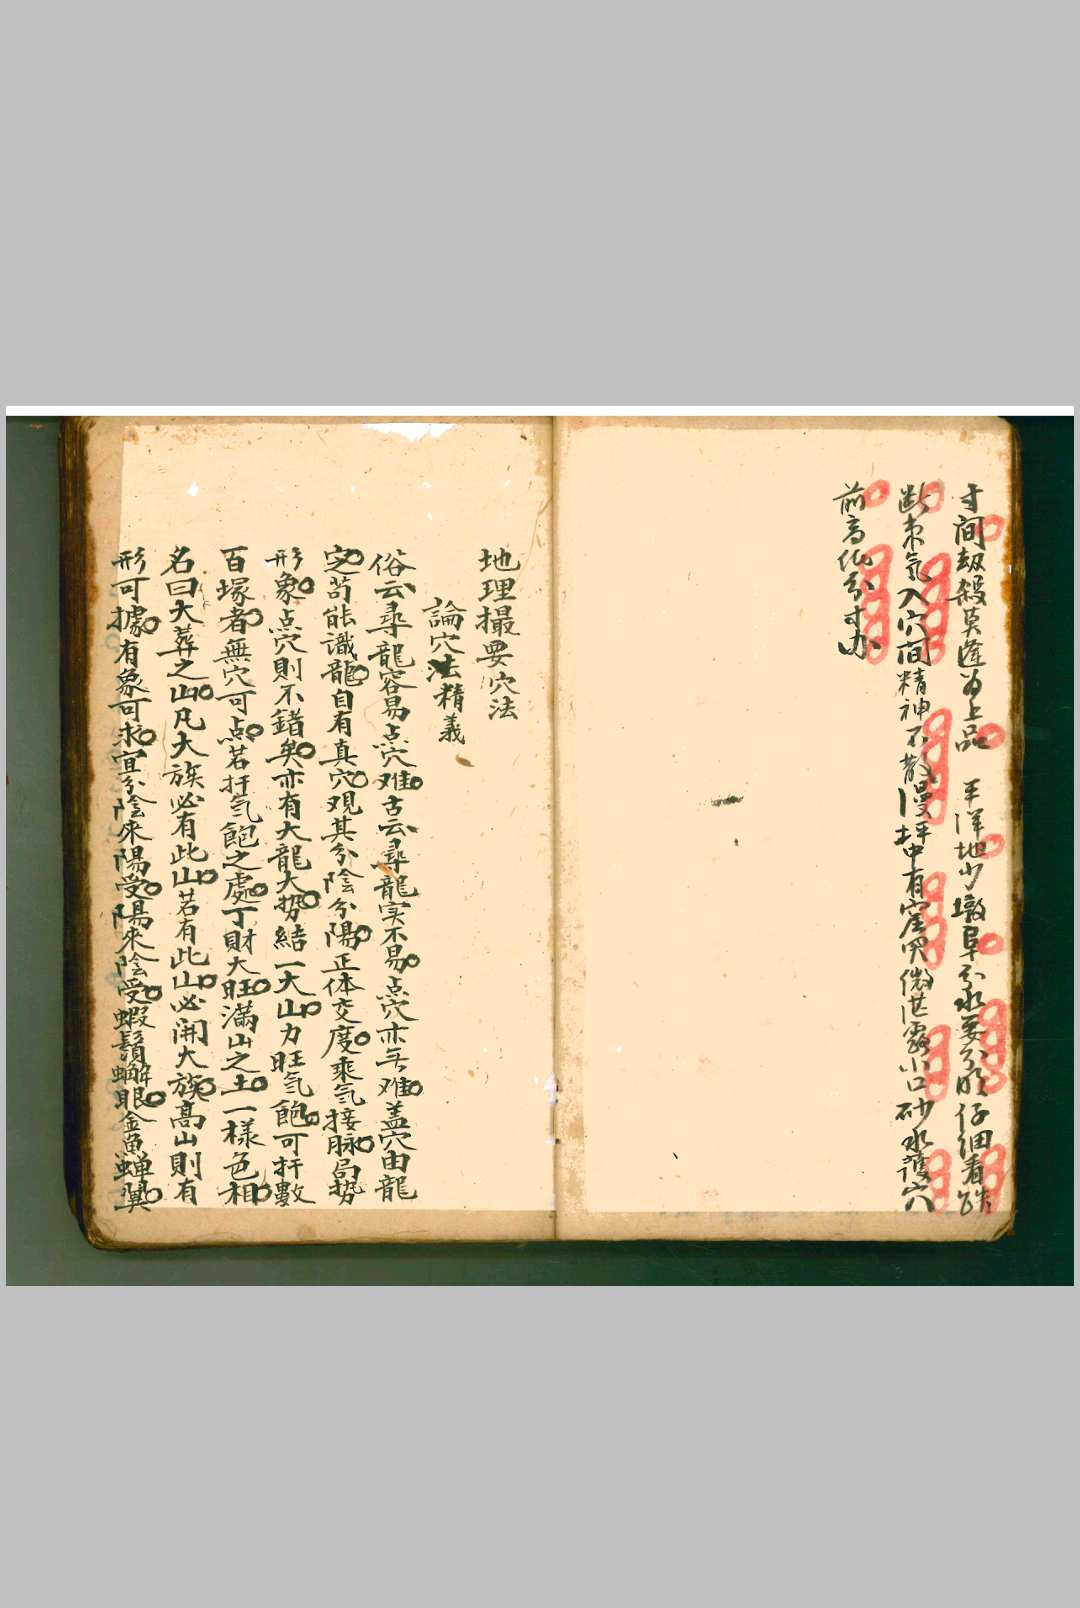 寸间刼殺莫逢为上品　平洋地少墩阜分水要分明仔细看跌
断来氣入穴间精神不散漫坪中有窟突微茫露小口砂水護穴
前高低分寸办
地理撮要穴法
論穴法精義
俗云尋龍容易点穴难古云尋龍实不易点穴亦无难盖穴由龍
定苟能識龍自有真穴观其分陰分陽正体交度乘気接脉局势
形象点穴則不錯矣亦有大龍大势結一大山力旺気飽可扦數
百塚者無穴可点若扦気飽之處丁財大旺满山之土一樣色相
名曰大葬之山凡大族必有此山若有此山必開大族高山則有
形可據有象可求宜分陰來陽受陽來陰受蝦鬚蠏眼金魚蟬翼